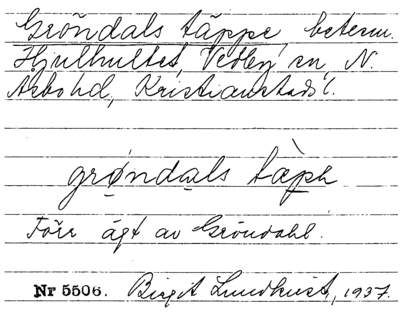 Gröndals täppe beterm.
Hjulhultet, Vedby sn, N.
Åsbo hd, Kristianstads l.
grøndals tæ̀ph
Förr ägt av Gröndahl.
Nr 5506. Birgit Lundkvist, 1937.